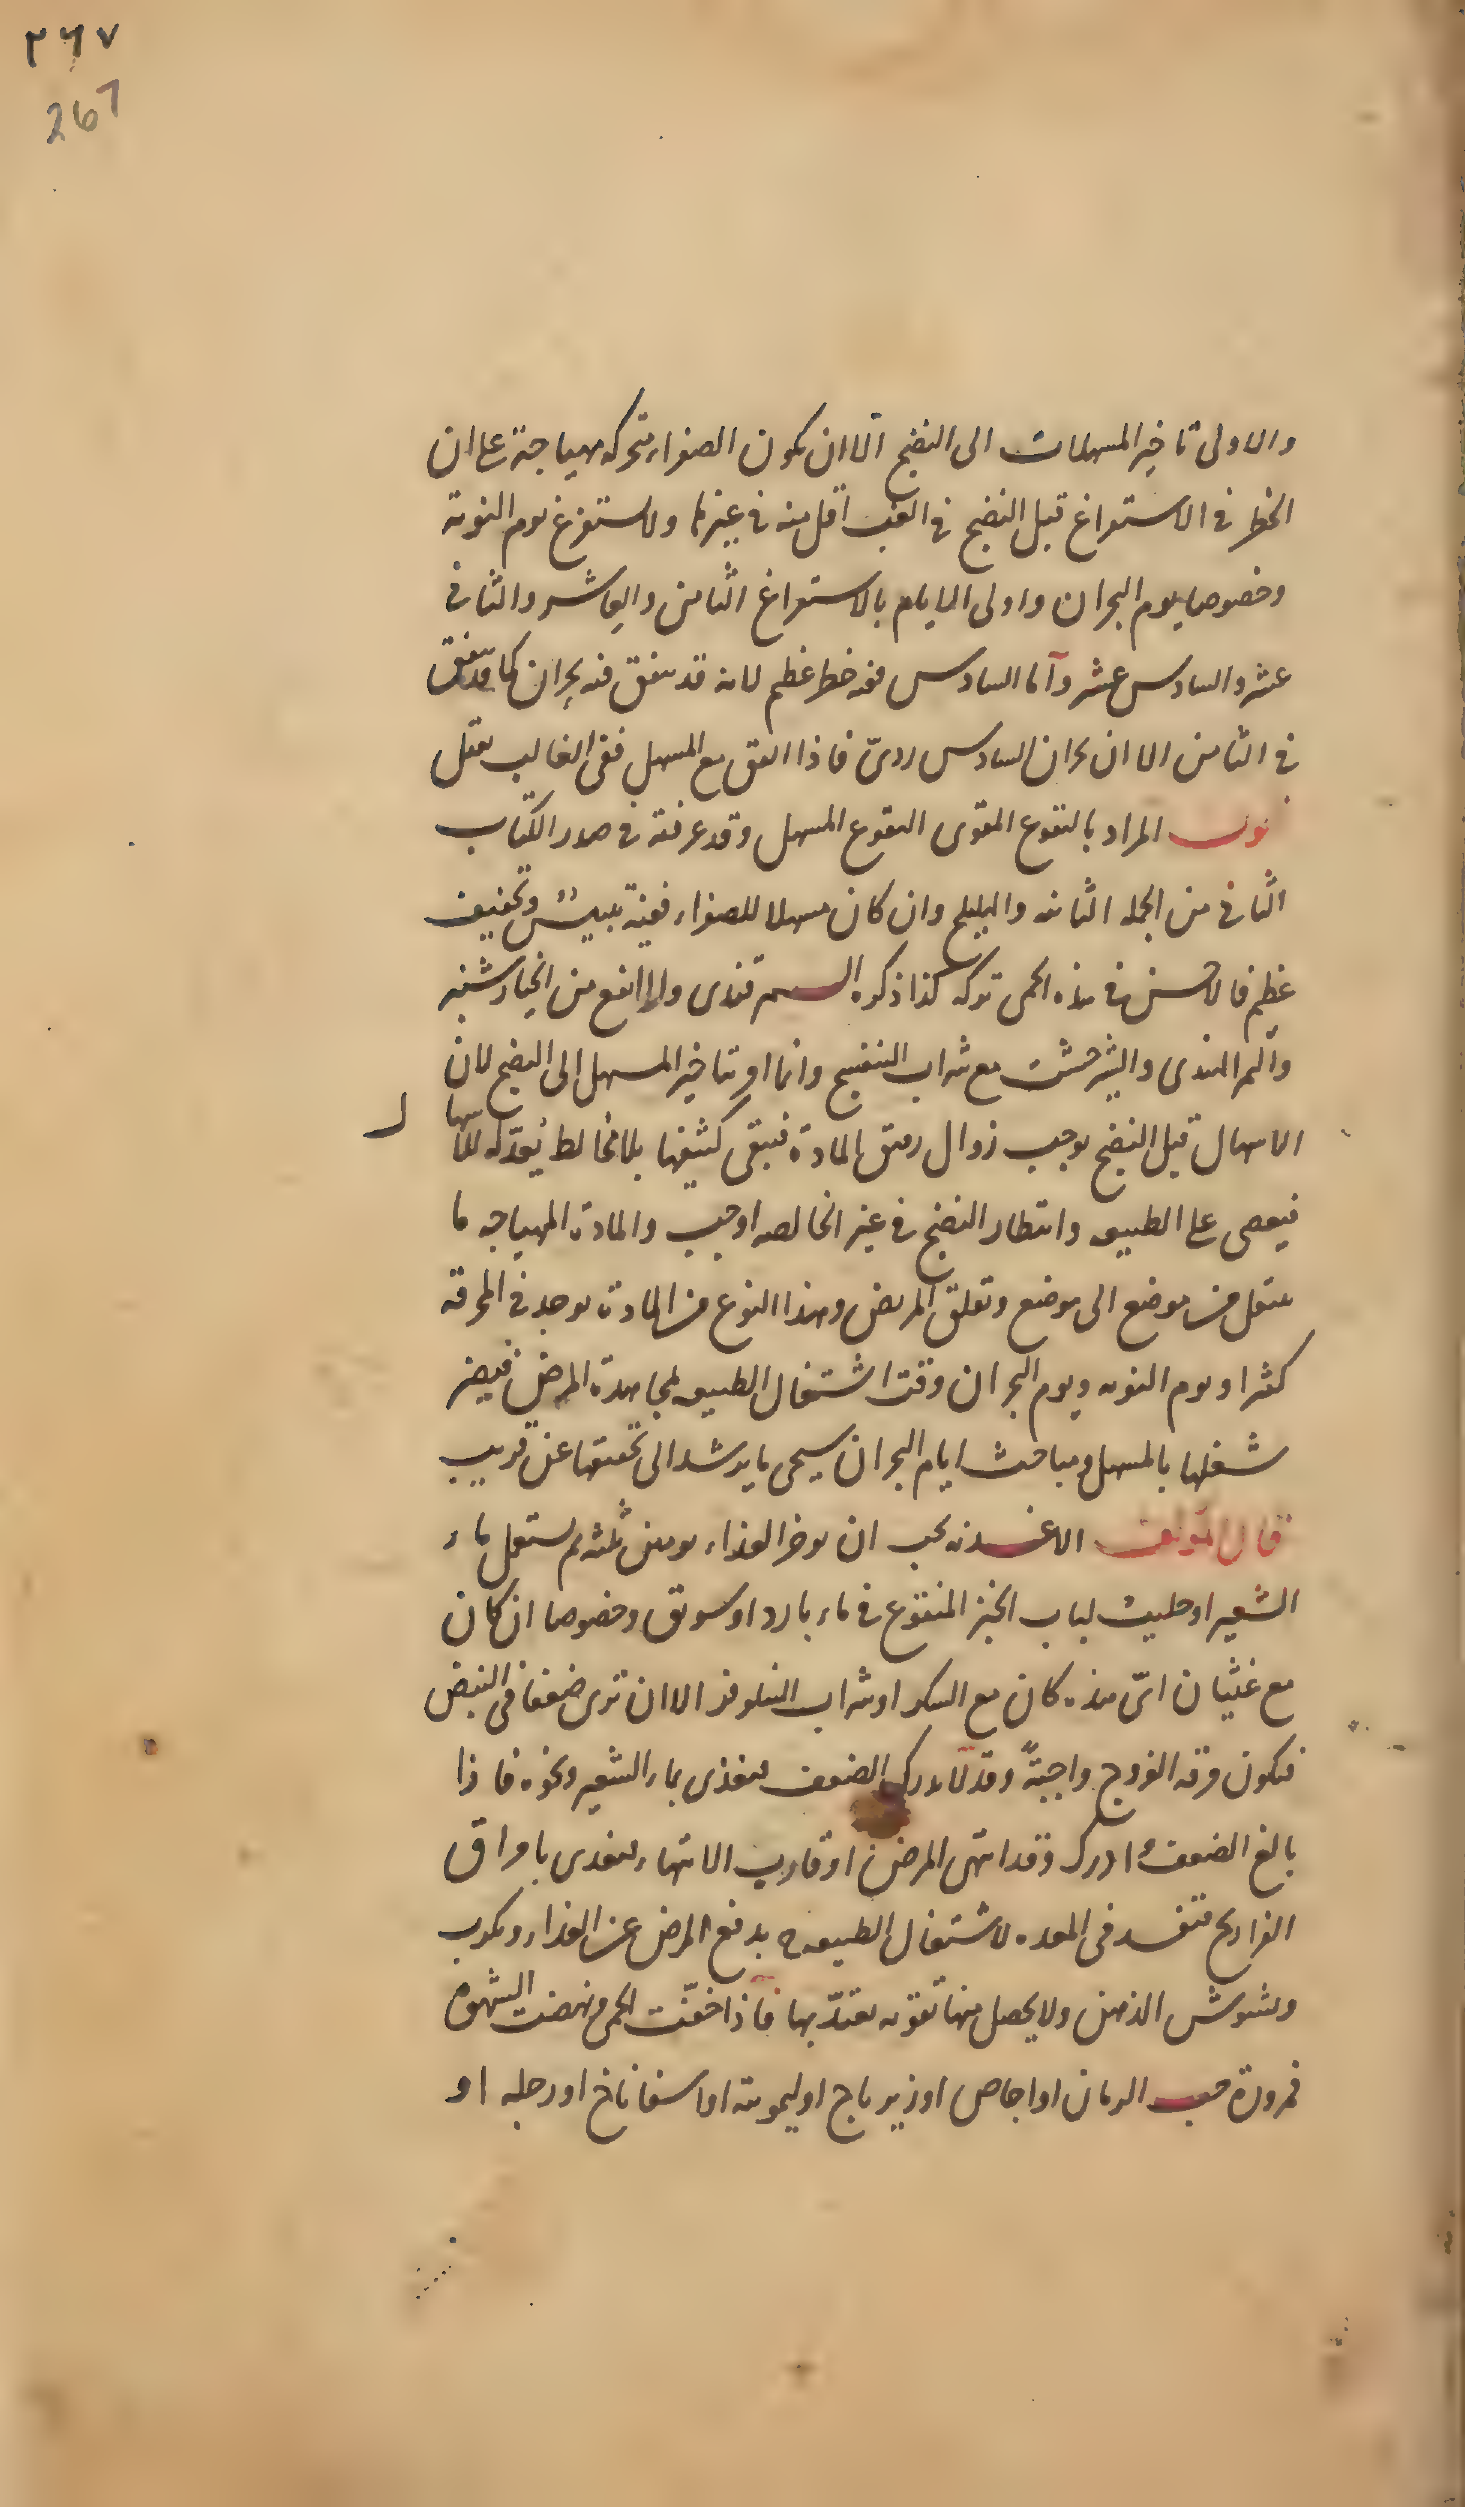 ٢٦٧
267
والاولى تاخير المسهلات الى النضج الا ان يكون الصفراء متحركة مهياجة على ان
الخطر في الاستفراغ قبل النضج في الغب اقل منه في غيرها ولا يستفرغ يوم النوبة
وخصوصا يوم البحران واولى الايام بالاستفراغ الثامن والعاشر والثاني
عشر والسادس عشر وأما السادس ففيه خطر عظيم لانه قد يتفق فيه بحران كما قد يتفق
في الثامن الا ان بحران السادس رديّ فاذا اتفق مع المسهل ففي الغالب يقتل
المراد بالنقوع المقوى النقوع المسهل وقد عرفته في صدر الكتاب
الثاني من الجملة الثانية والهليلج وان كان مسهلا للصفراء ففيه يبس وتجفيف
عظيم فالاحسن في هذه الحمى تركه كذا ذكره السمرقندى ولا انفع من الخيارشنبر
والتمر الهندى والشيرخشت مع شراب البنفسج وانما اوثر تاخير المسهل الى النضج لان
الاسهال قبل النضج يوجب زوال رقيق المادة فيبقى كثيفها بلا مخالط يُعدّله للاسهال
فيعصى على الطبيعة وانتظار النضج في غير الخالصة اوجب والمادة المهياجة ما
ينتقل من موضع الى موضع وتقلق المريض وهذا النوع من المادة يوجد في المحرقة
كثيرا ويوم النوبة ويوم البحران وقت اشتغال الطبيعة بمجاهدة المرض فيضر
شغلها بالمسهل ومباحث ايام البحران سيجى ما يرشد الى تحقيقها عن قريب
قال المؤلف الاغذية يجب ان يوخر الغذاء يومين ثلثة ثم يستعمل ماء
الشعير او حليب لباب الخبز المنقوع في ماء بارد او سويق وخصوصا ان كان
مع غثيان ايّ هذه كان مع السكر او شراب النيلوفر الا ان ترى ضعفا في النبض
فيكون مرقة الفروج واجبةً وقد لا يدرك الضعف فيغذى بماء الشعير ونحوه فاذا
بالغ الضعف ادرك وقد انتهى المرض او قارب الانتهاء فيغذى بامراق
الفراريج فتفسد في المعدة لاشتغال الطبيعة ح بدفع المرض عن الغذاء ويكرب
ويشوش الذهن ولا يحصل منها تقوية يعتدّ بها فاذا خفّت الحمى ونهضت الشهوة
فمزورة حب الرمان او اجاص او زيرباج او ليمونية او اسفاناخ او رجلة او